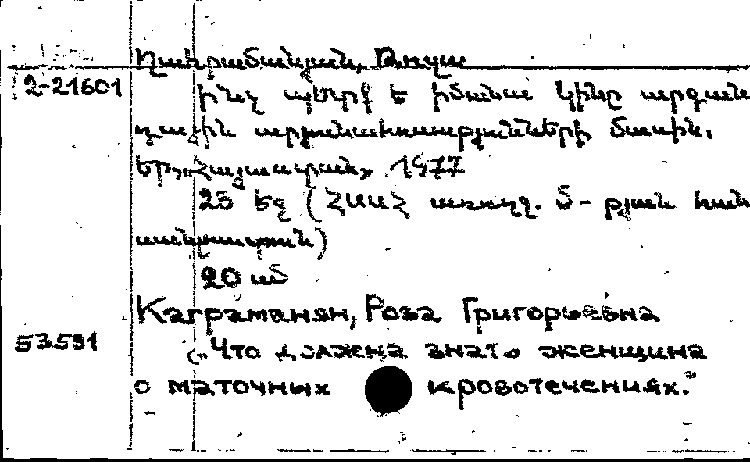 Ղահրամանյան, Ռոզա
2-21601
ինչ պետք է իմանա կինը արգան
դային արյունահոսությունների մասին.
Եր., Հայաստան, 1977
25 եզ (ՀՍՍՀ առողջ. մ-թյան հան
20 սմ
Каграманян, Роза Григорьевна
53591
(„Что должна знать женщина
о маточных кровотечениях.“